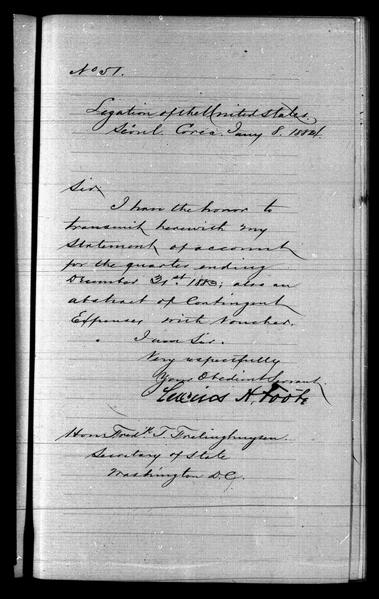 No 51.
Legation of the United States.
Séoul. Corea. Jany 8. 1884.
Sir
I have the honor to
transmit herewith my
statement of account
for the quarter ending
December 31st 1883; also an
abstract of Contingent
Expenses, with Voucher.
I am Sir.
Very respectfully
Your Obedient Servant
Lucius H. Foote
Hon. Fredk T. Frelinghuysen.
Secretary of State
Washington D.C.